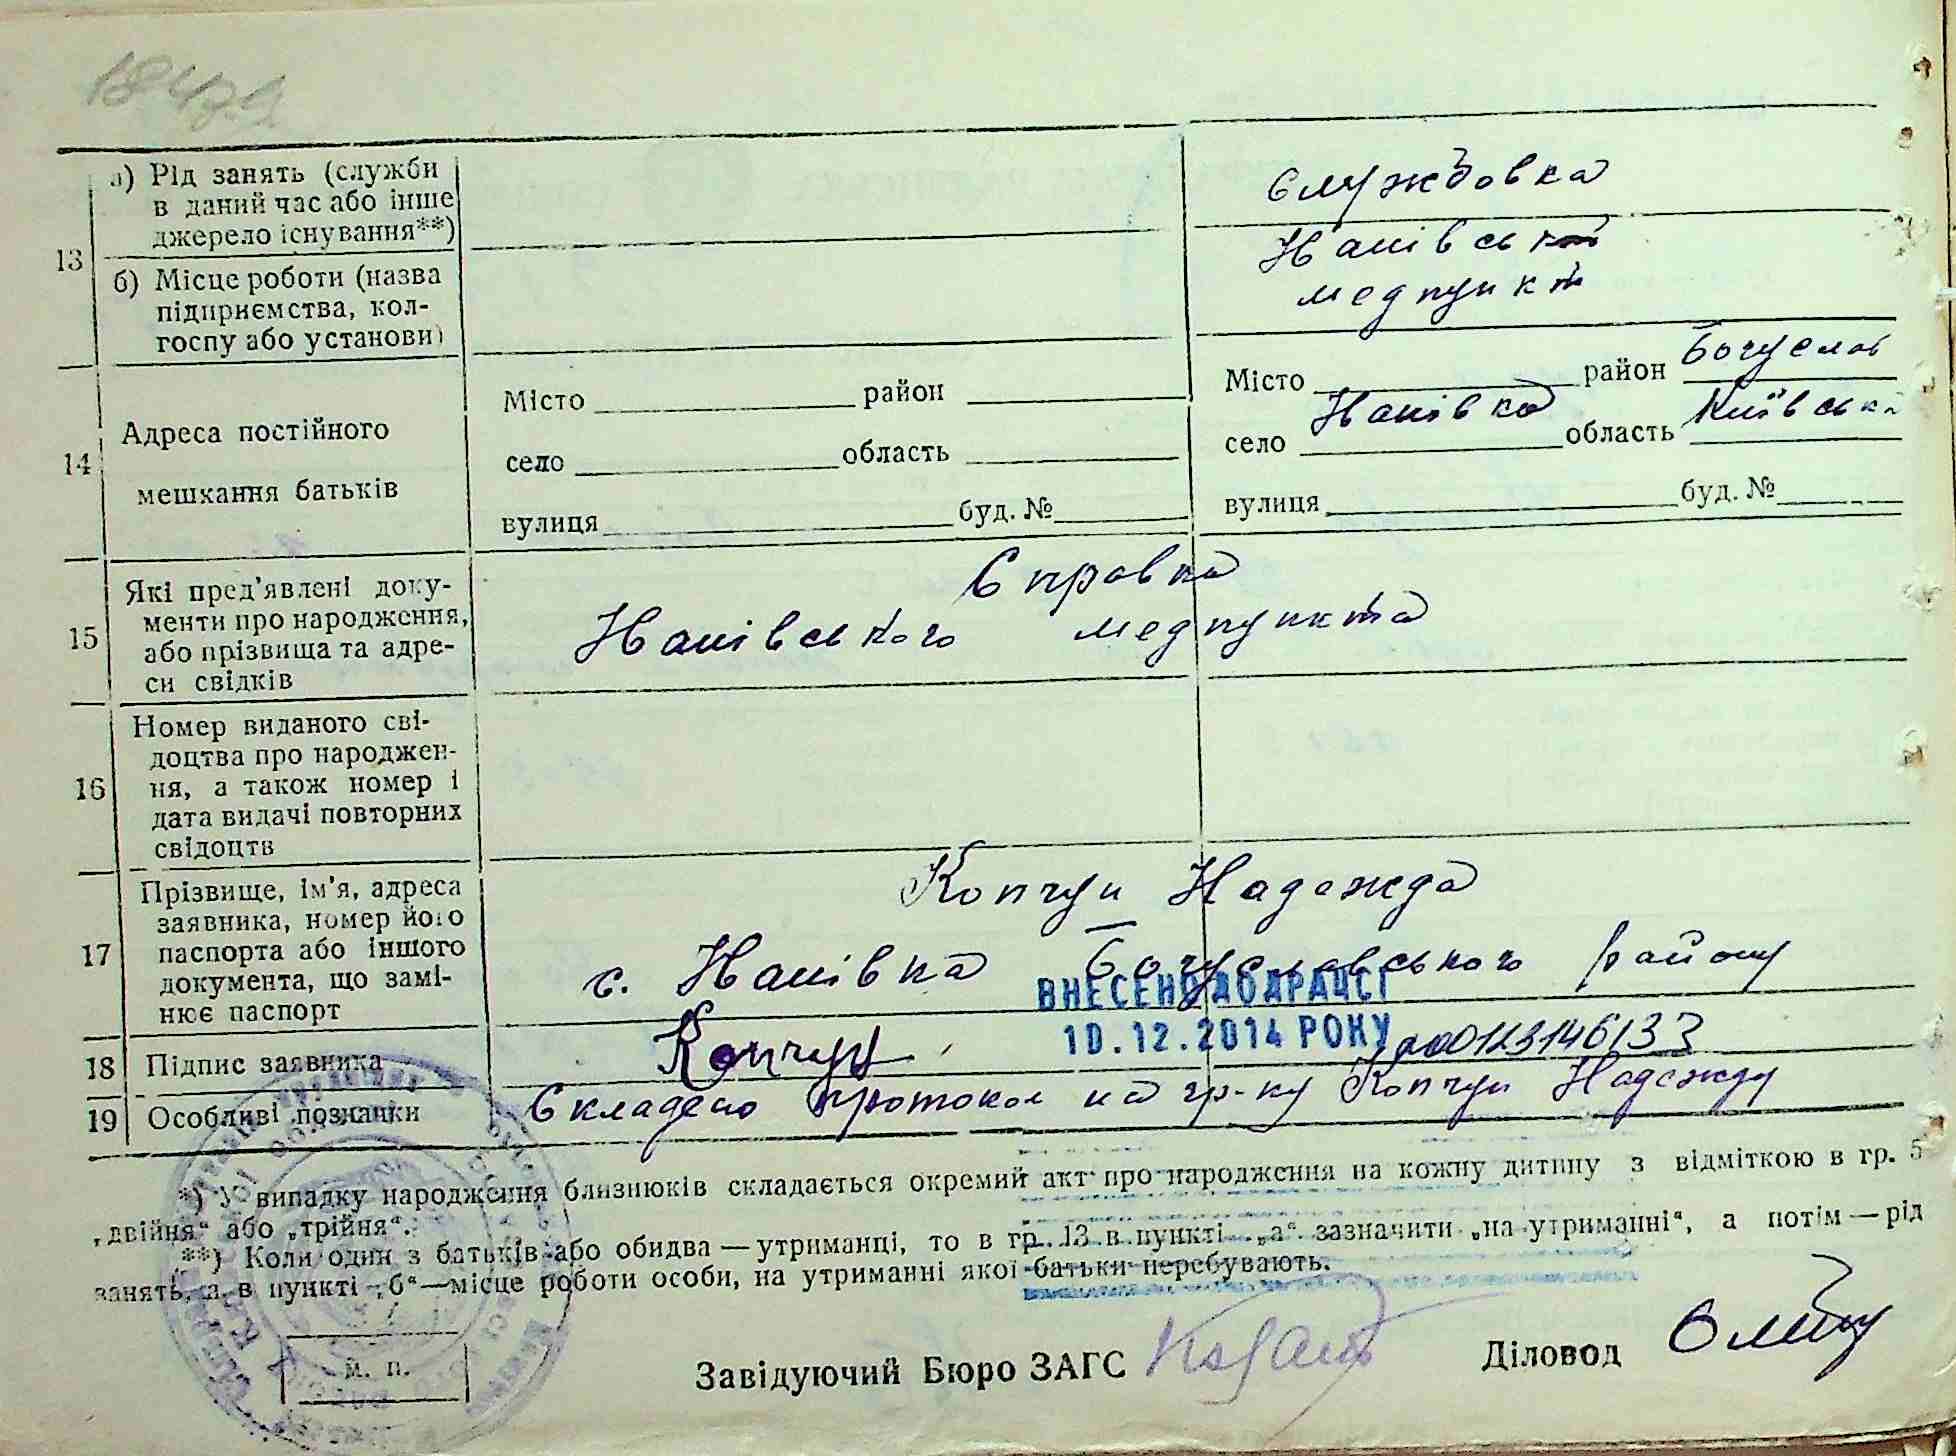 а) Рід занять (служби
в даний час або інше
джерело існування**)
13
Службовка
б) Місце роботи (назва
підприємства, кол-
госпу або установи)
медпункт
14
Адреса постійного
мешкання батьків
Місто район
село область
вулиця буд. №
Місто район Богуслав
село область Київська
вулиця буд. №
15
Які пред'явлені доку-
менти про народження,
або прізвища та адре-
си свідків
Справка
медпункта
16
Номер виданого сві-
доцтва про народжен-
ня, а також номер і
дата видачі повторних
свідоцтв
17
Прізвище, ім'я, адреса
заявника, номер його
паспорта або іншого
документа, що замі-
нює паспорт
Копчун Надежда
с. Богуславського району
ВНЕСЕНО ДО ДРАЦСГ
10.12.2014 РОКУ 00123146133
18 Підпис заявника
Копчун
19 Особливі познаики
Складено протокол на гр-ку Копчун Надежду
*) У випадку народження близнюків складається окремий акт про народження на кожну дитину з відміткою в гр. 5
„двійня“ або „трійня“.
**) Коли один з батьків або обидва — утриманці, то в гр. 13 в пункті „а“ зазначити „на утриманні“, а потім — рід
занять, а в пункті „б“ — місце роботи особи, на утриманні якої батьки перебувають.
М. П.
Завідуючий Бюро ЗАГС
Діловод